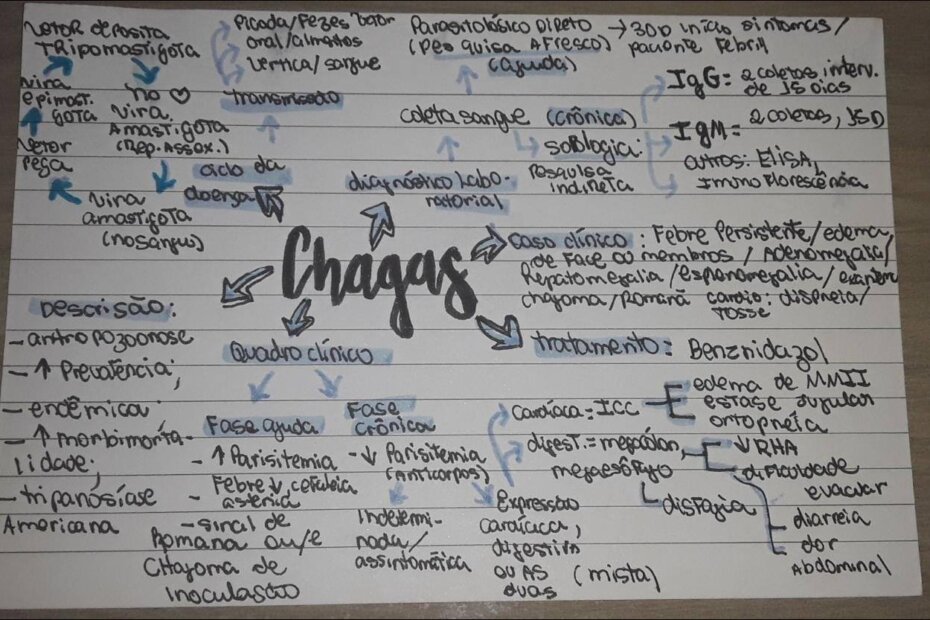 Vetor deposita
Tripomastigota
no ♡
vira
Amastigota
(Rep. Assex.)
vira
amastigota
(no sangue)
Vetor
pega
vira
epimast.
gota
ciclo da
doença
Picada/Fezes
oral/alimetos
vertica/sangue
transmissão
Parasitológico Direto → 30D início sintomas/
(pesquisa Afresco) paciente Febril
(aguda)
coleta sangue (crônica)
sorologia:
Pesquisa
indireta
IgG = 2 coletas interv.
de 15 dias
IgM = 2 coletas, 15D
outros: Elisa,
Imuno Florescência
diagnóstico Labo-
ratorial
Chagas
caso clínico: Febre Persistente/edema
de Face ou membros/Adenomegalia/
Hepatomegalia/esplenomegalia/exantem
chagoma/Romanã cardio: dispneia/
tosse
tratamento: Benznidazol
Descrisão:
- antropozoonose
- ↑ Prevalência;
- endêmica
- ↑ morbimorta-
lidade;
- tripanósíase
Americana
Quadro clínico
Fase aguda
- ↑ Parisitemia
- Febre ↓, cefaleia
astenia
- sinal de
Romana ou/e
Chagoma de
inoculasão
Fase
crônica
- ↓ Parisitemia
(Anticorpos)
Indetermi-
nada/
assintomática
Expressão
cardíaca,
digestiva
ou AS
duas (mista)
cardíaca = ICC
edema de MMII
estase jugular
ortopnéia
digest. = megacólon,
megaesôfago
disfagia
↓ RHA
dificuldade
evacuar
diarreia
dor
Abdominal